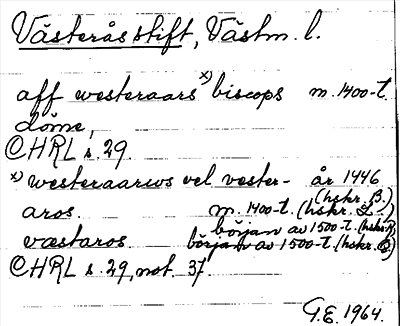 Västerås stift, Västm. l.
aff westeraars x) biscops m. 1400-t.
döme,
CHRL s. 29.
x) westeraarws vel vester- år 1446 (hskr. B.)
aros. m. 1400-t. (hskr. L.)
början av 1500-t. (hskr.
væstaros. början av 1500-t. (hskr.
CHRL s. 29, not. 37.
G.E. 1964.